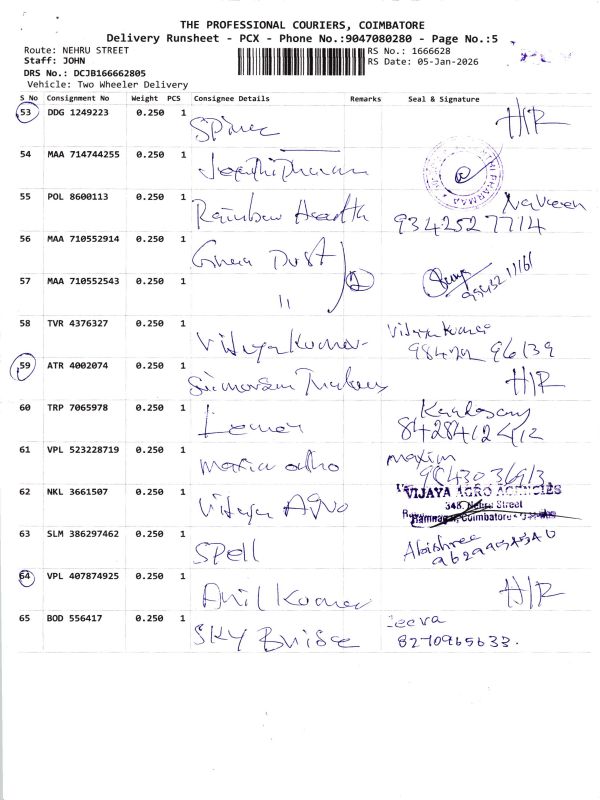 THE PROFESSIONAL COURIERS, COIMBATORE
Delivery Runsheet - PCX - Phone No.:9047080280 - Page No.:5
Route: NEHRU STREET
RS No.: 1666628
Staff: JOHN
RS Date: 05-Jan-2026
DRS No.: DCJB166662805
Vehicle: Two Wheeler Delivery
S No Consignment No Weight PCS Consignee Details Remarks Seal & Signature
53 DDG 1249223 0.250 1 H/R
54 MAA 714744255 0.250 1
55 POL 8600113 0.250 1 Rainbow Health Naveen
9342527714
56 MAA 710552914 0.250 1
57 MAA 710552543 0.250 1 11 2
58 TVR 4376327 0.250 1 Vijayakumar Vijayakumar
59 ATR 4002074 0.250 1 H/R
60 TRP 7065978 0.250 1
8428412412
61 VPL 523228719 0.250 1 maxim
62 NKL 3661507 0.250 1 Vijaya Agro
VIJAYA AGRO AGENCIES
348, Nehru Street
Ramnagar, Coimbatore -
63 SLM 386297462 0.250 1 Spell
64 VPL 407874925 0.250 1 Anil Kumar H/R
65 BOD 556417 0.250 1 SKY Bridge Jeeva
8270965633.